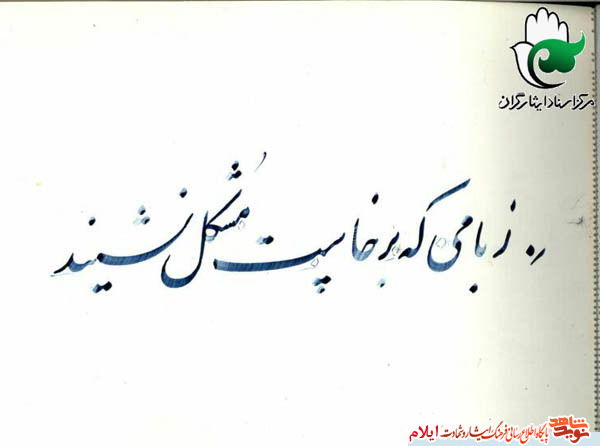 مرکز اسناد ایثارگران
ز بامی که برخاست مُشکل نشیند
نوید شاهد پایگاه اطلاع رسانی فرهنگ ایثار و شهادت ایلام